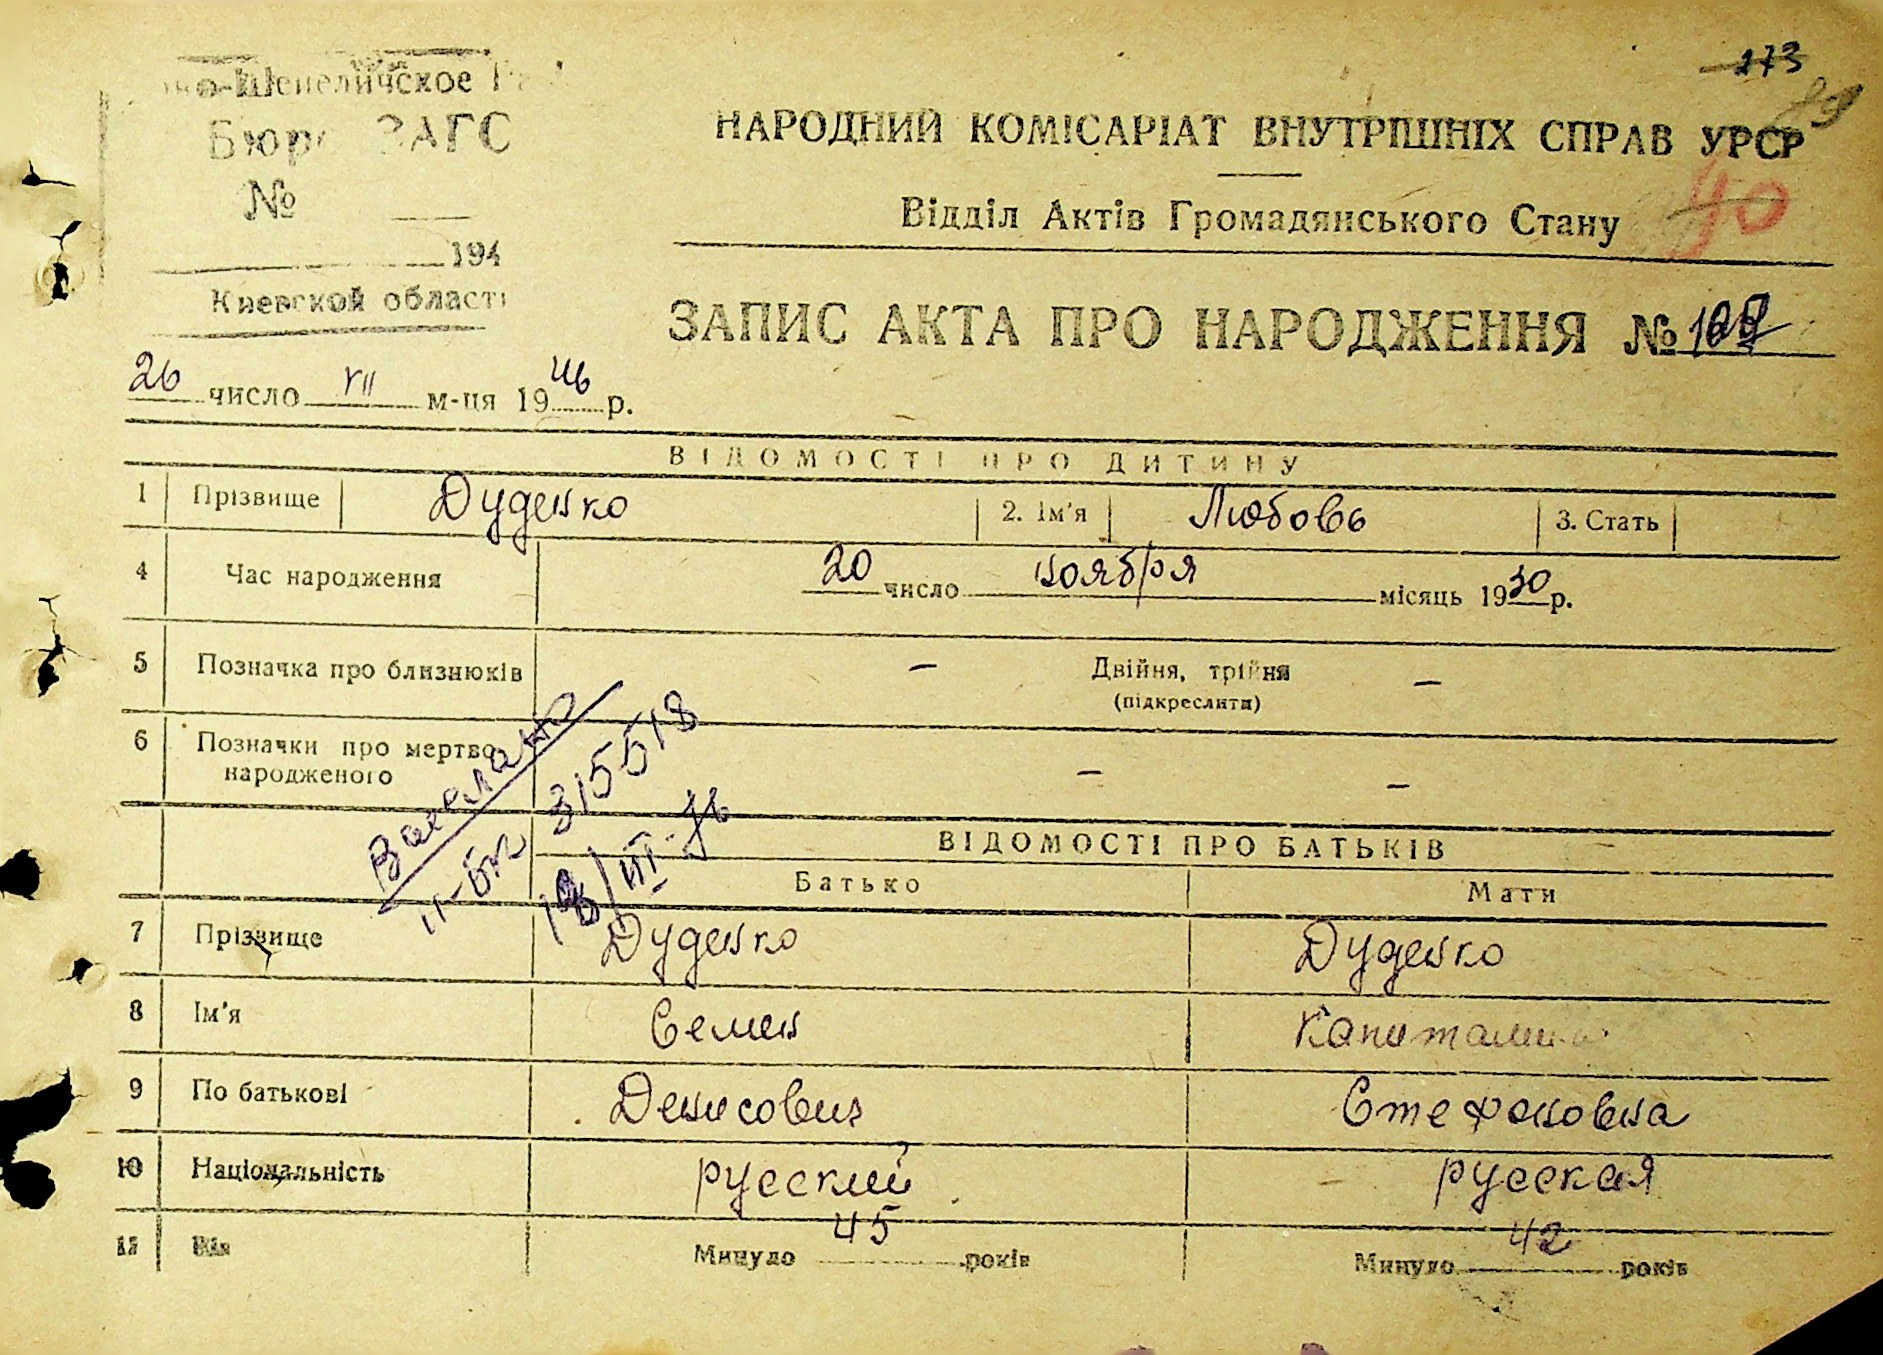 173
79
-Шепеличское
Бюро ЗАГС
НАРОДНИЙ КОМІСАРІАТ ВНУТРІШНІХ СПРАВ УРСР
40
№
Відділ Актів Громадянського Стану
194
Киевской області
ЗАПИС АКТА ПРО НАРОДЖЕННЯ №
26 число VII м-ця 1946 р.
ВІДОМОСТІ ПРО ДИТИНУ
1 Прізвище Дуденко 2. Ім'я Любовь 3. Стать
4 Час народження 20 число ноября місяць 1930 р.
5 Позначка про близнюків — Двійня, трійня —
(підкреслити)
6 Позначки про мертво
народженого — —
315518
ВІДОМОСТІ ПРО БАТЬКІВ
Батько Мати
7 Прізвище Дуденко Дуденко
8 Ім'я Семен Капиталина
9 По батькові Денисович Стефановна
10 Національність русский русская
11 Вік Минуло 45 років Минуло 42 років